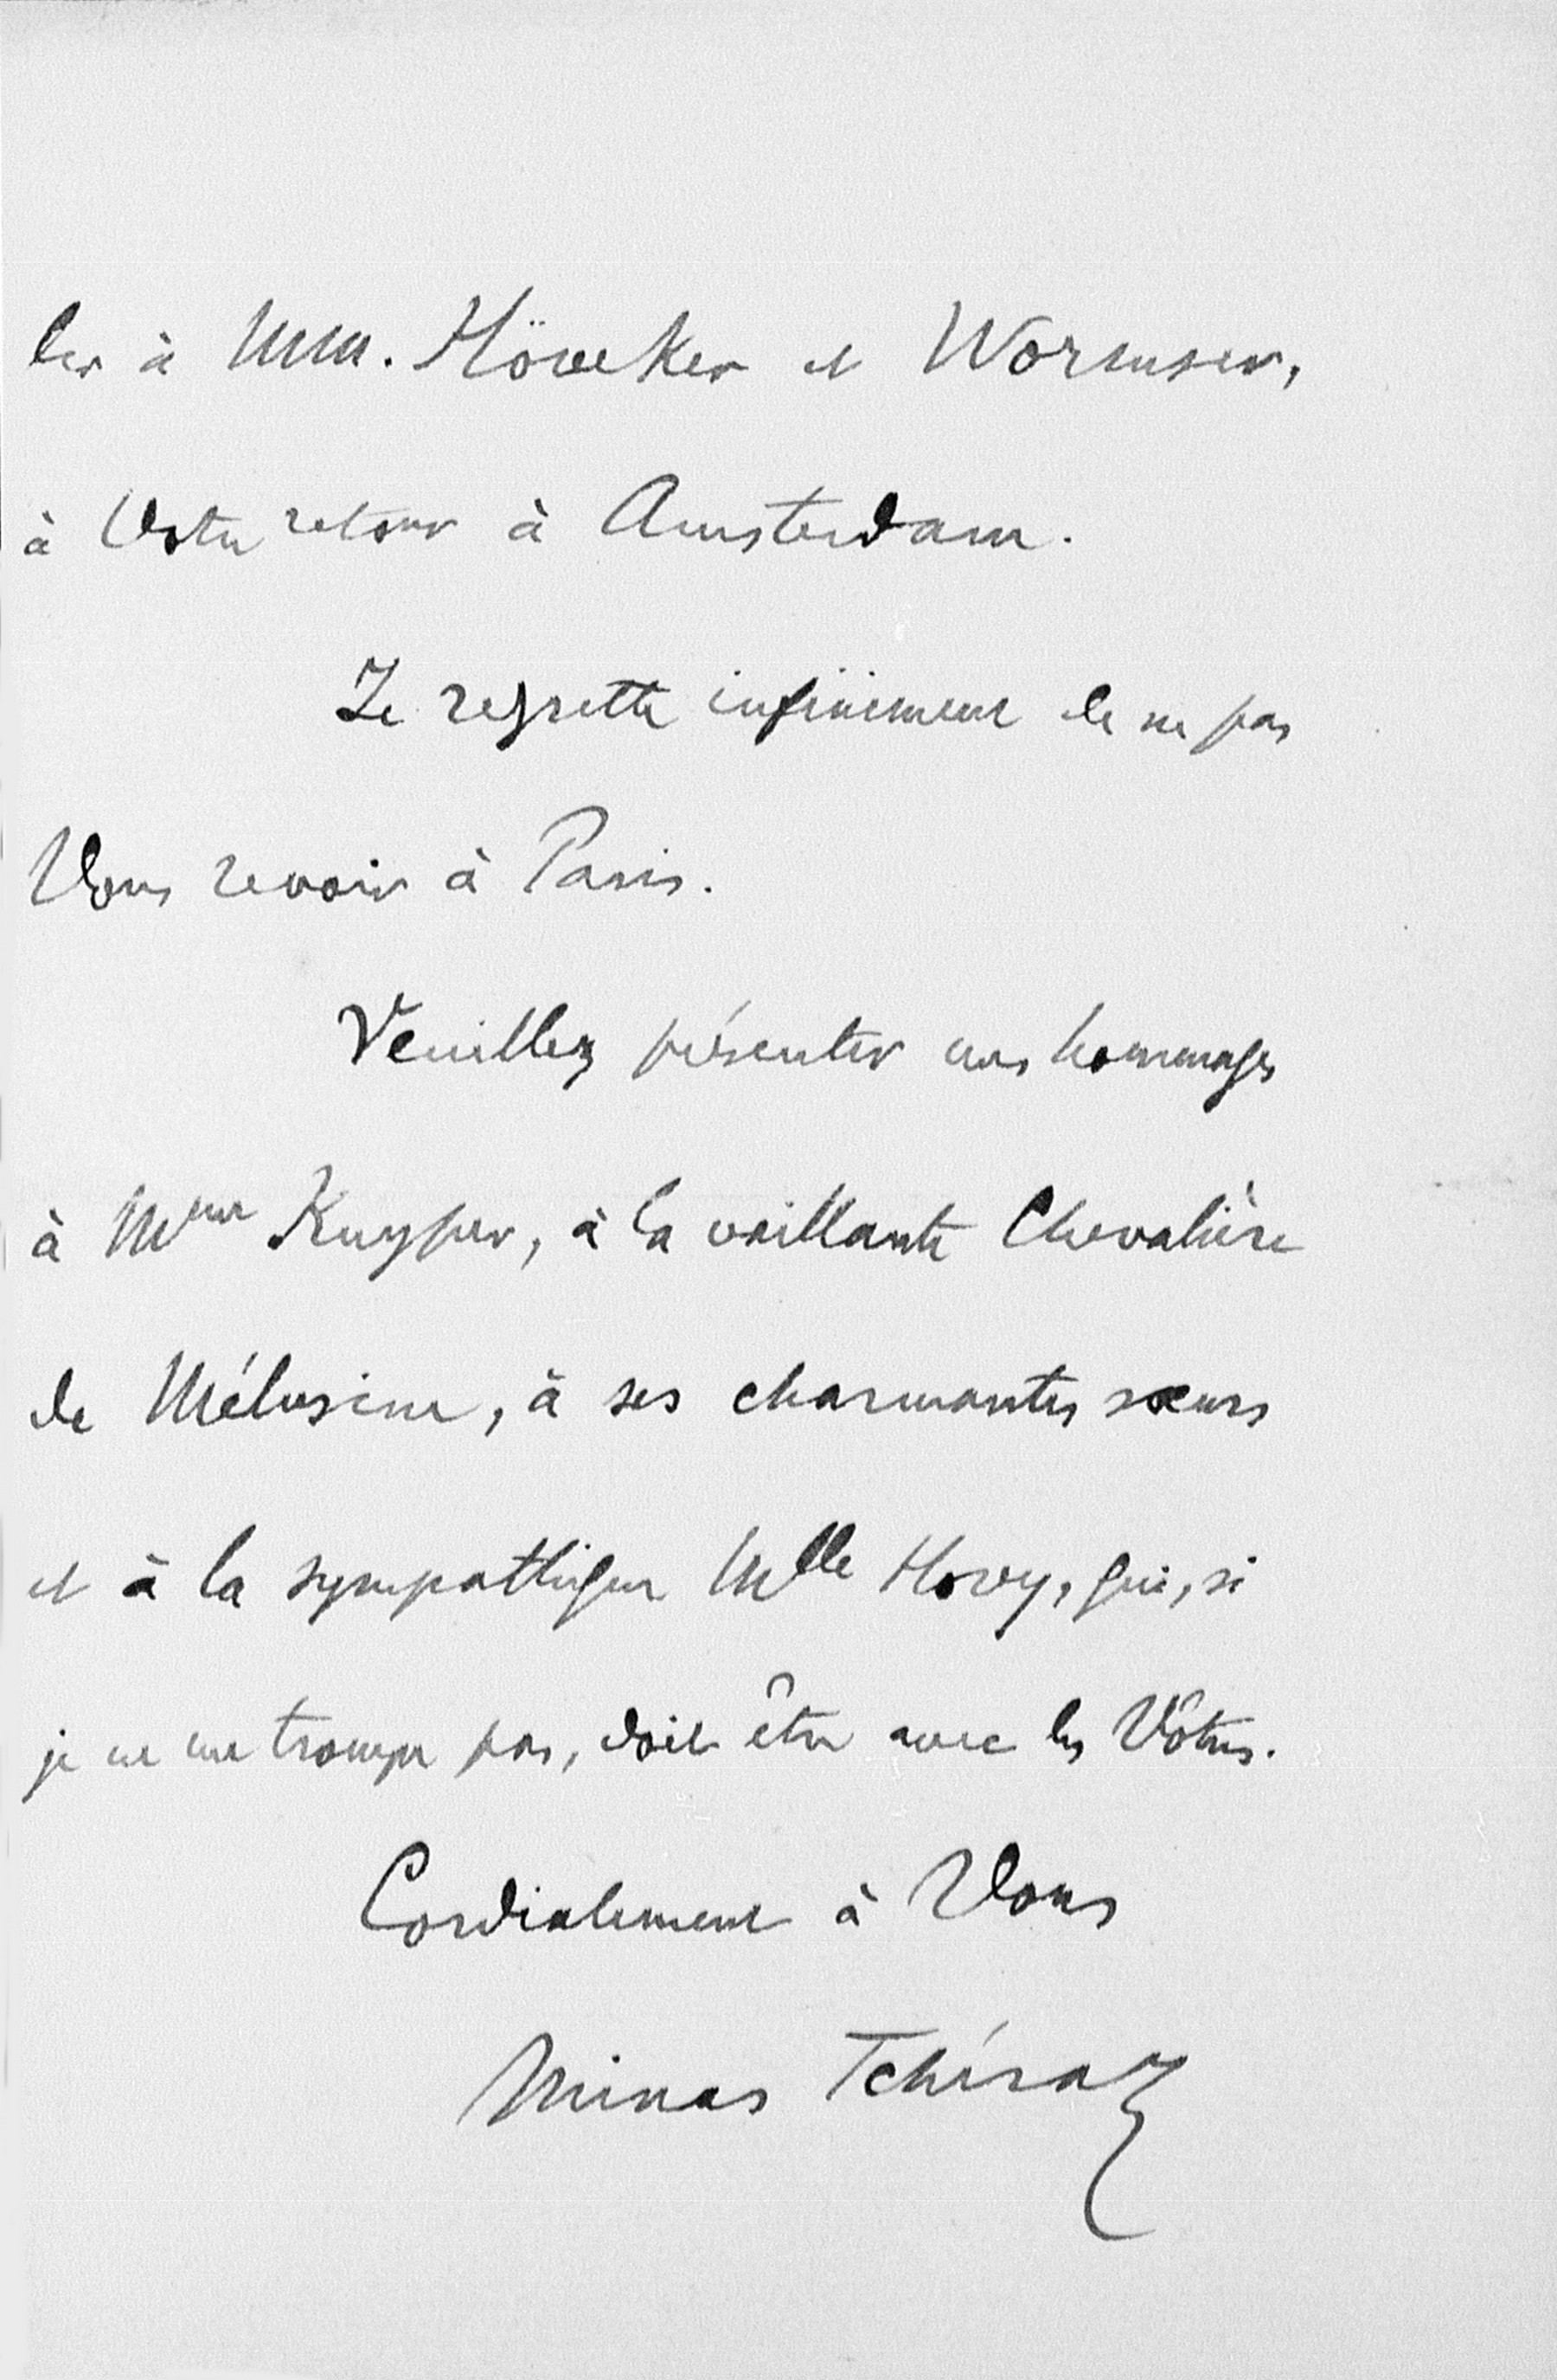 ler à MM. Höveker et Wormser,
à Votre retour à Amsterdam.
Je regrette infiniment de ne pas
Vous revoir à Paris.
Veuillez présenter mes hommages
à Mme Kuyper, à la vaillante Chevalière
de Mélusine, à ses charmantes sœurs
et à la sympathique Mlle Hovy, qui, si
je ne me trompe pas, doit être avec les Vôtres.
Cordialement à Vous
Minas Tchéraz